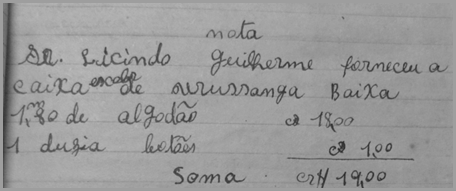 nota
Sr. Licindo Guilherme forneceu a
caixa escolar de urussanga Baixa
1,m80 de algodão cr 18,00
1 duzia botões cr 1,00
Soma cr$ 19,00